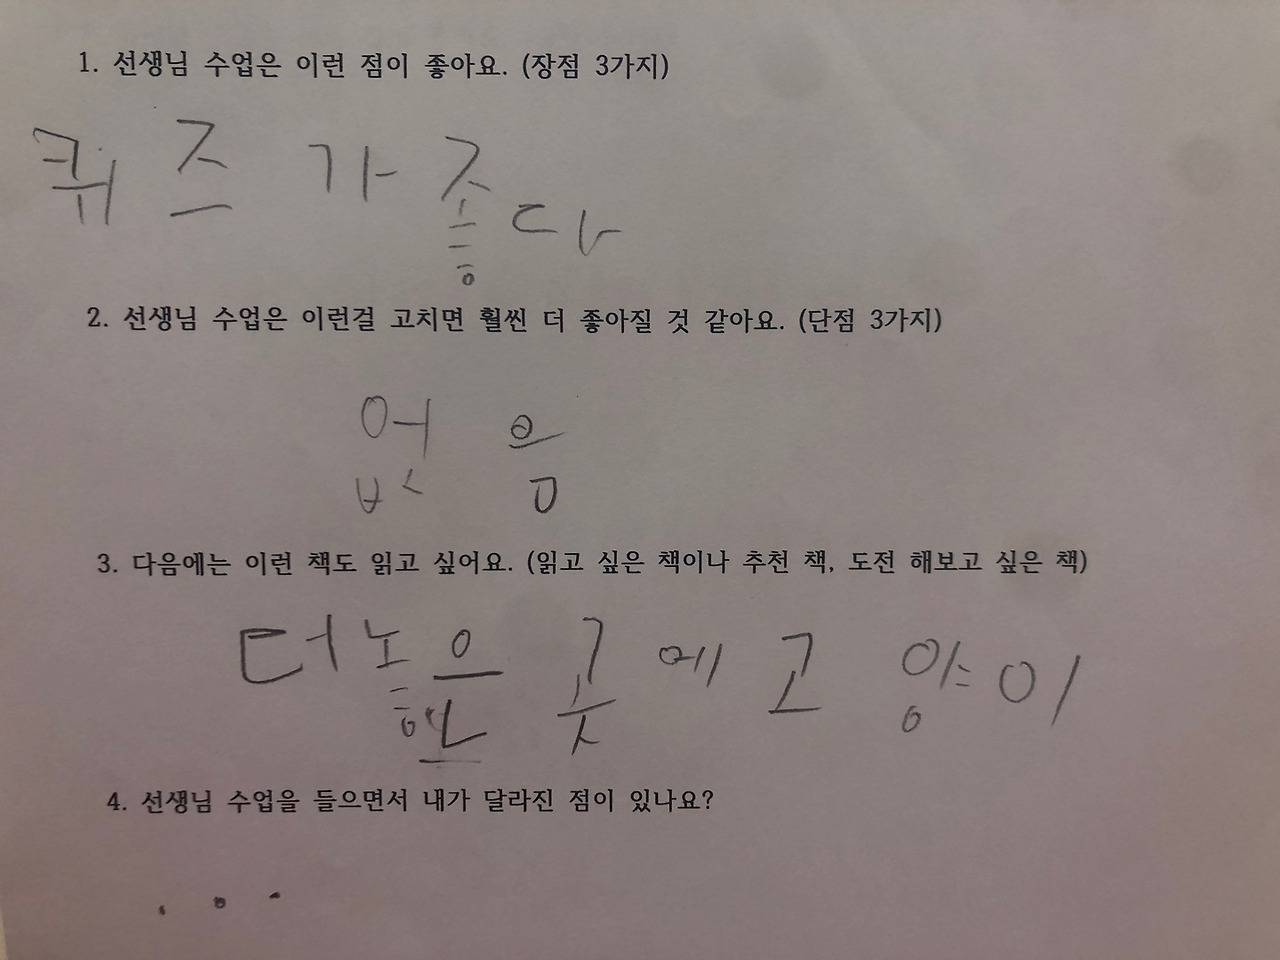 1. 선생님 수업은 이런 점이 좋아요. (장점 3가지)
퀴즈가 좋다
2. 선생님 수업은 이런걸 고치면 훨씬 더 좋아질 것 같아요. (단점 3가지)
없음
3. 다음에는 이런 책도 읽고 싶어요. (읽고 싶은 책이나 추천 책, 도전 해보고 싶은 책)
더 높은 곳에 고양이
4. 선생님 수업을 들으면서 내가 달라진 점이 있나요?
...